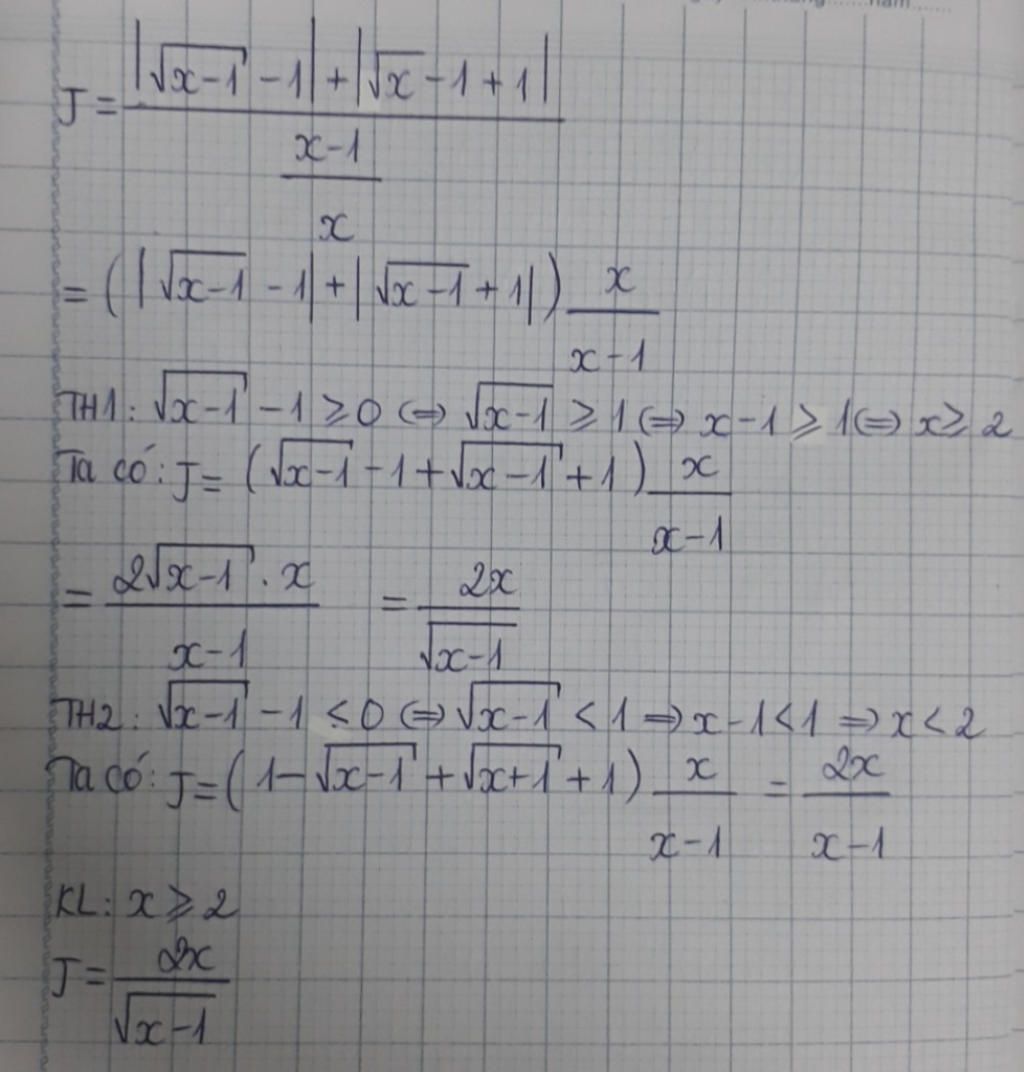 J = (|√(x-1) - 1| + |√x - 1 + 1|) / ((x-1)/x)
= (|√(x-1) - 1| + |√(x-1) + 1|) x/(x-1)
TH1: √(x-1) - 1 ≥ 0 ⇔ √(x-1) ≥ 1 ⇔ x-1 ≥ 1 ⇔ x ≥ 2
Ta có: J = (√(x-1) - 1 + √(x-1) + 1) x/(x-1)
= (2√(x-1) . x)/(x-1) = 2x/√(x-1)
TH2: √(x-1) - 1 < 0 ⇔ √(x-1) < 1 ⇒ x-1 < 1 ⇒ x < 2
Ta có: J = (1 - √(x-1) + √(x+1) + 1) x/(x-1) = 2x/(x-1)
KL: x ≥ 2
J = 2x/√(x-1)